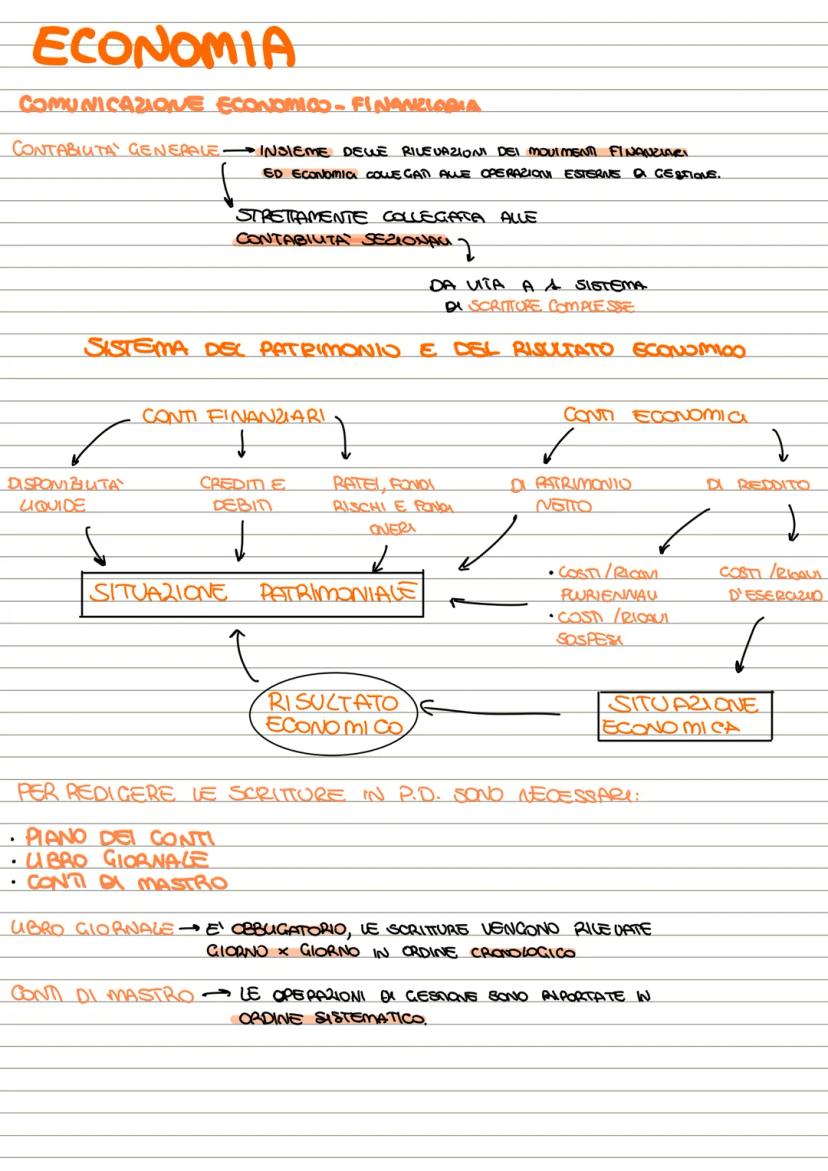 ECONOMIA
COMUNICAZIONE ECONOMICO - FINANZIARIA
CONTABILITA' GENERALE → INSIEME DELLE RILEVAZIONI DEI MOVIMENTI FINANZIARI
ED ECONOMICI COLLEGATI ALLE OPERAZIONI ESTERNE DI GESTIONE.
STRETTAMENTE COLLEGATA ALLE
CONTABILITA' SEZIONALI
DA VITA A 1 SISTEMA
DI SCRITTURE COMPLESSE
SISTEMA DEL PATRIMONIO E DEL RISULTATO ECONOMICO
CONTI FINANZIARI
CONTI ECONOMICI
DISPONIBILITA'
LIQUIDE
CREDITI E
DEBITI
RATEI, FONDI
RISCHI E FONDI
ONERI
DI PATRIMONIO
NETTO
DI REDDITO
SITUAZIONE PATRIMONIALE
• COSTI /RICAVI
PLURIENNALI
• COSTI /RICAVI
SOSPESI
COSTI /RICAVI
D'ESERCIZIO
RISULTATO
ECONOMICO
SITUAZIONE
ECONOMICA
PER REDIGERE LE SCRITTURE IN P.D. SONO NECESSARI:
• PIANO DEI CONTI
• LIBRO GIORNALE
• CONTI DI MASTRO
LIBRO GIORNALE → E' OBBLIGATORIO, LE SCRITTURE VENGONO RILEVATE
GIORNO x GIORNO IN ORDINE CRONOLOGICO
CONTI DI MASTRO → LE OPERAZIONI DI GESTIONE SONO RIPORTATE IN
ORDINE SISTEMATICO.